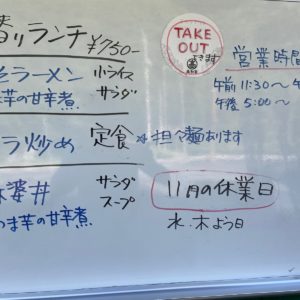 替りランチ ¥750-
ラーメン 小ライス
ま芋の甘辛煮 サラダ
ラ炒め 定食 ※担々麺あります
婆丼 サラダ
つま芋の甘辛煮 スープ
TAKE
OUT
できます
営業時間
午前 11:30〜
午後 5:00 〜
11月の休業日
水・木よう日